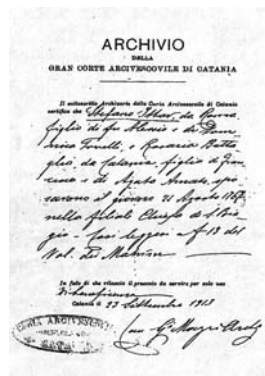 ARCHIVIO
DELLA
GRAN CORTE ARCIVESCOVILE DI CATANIA
Il sottoscritto Archivario della Curia Arcivescovile di Catania
certifica che Stefano Ittar, da Roma
figlio di fu Alessio e di Dom-
nica Tonelli, e Rosaria Batta-
glia da Catania, figlia di Fran-
cesco e di Agata Amato, spo-
sarono il giorno 21 Agosto 1767
nella filiale Chiesa di S. Bia-
gio - Così leggesi a f. 13 del
Vol. dei Matrim
In fede di che rilascio il presente da servire per solo uso
Catania li 23 Settembre 1913
CURIA ARCIVESCO